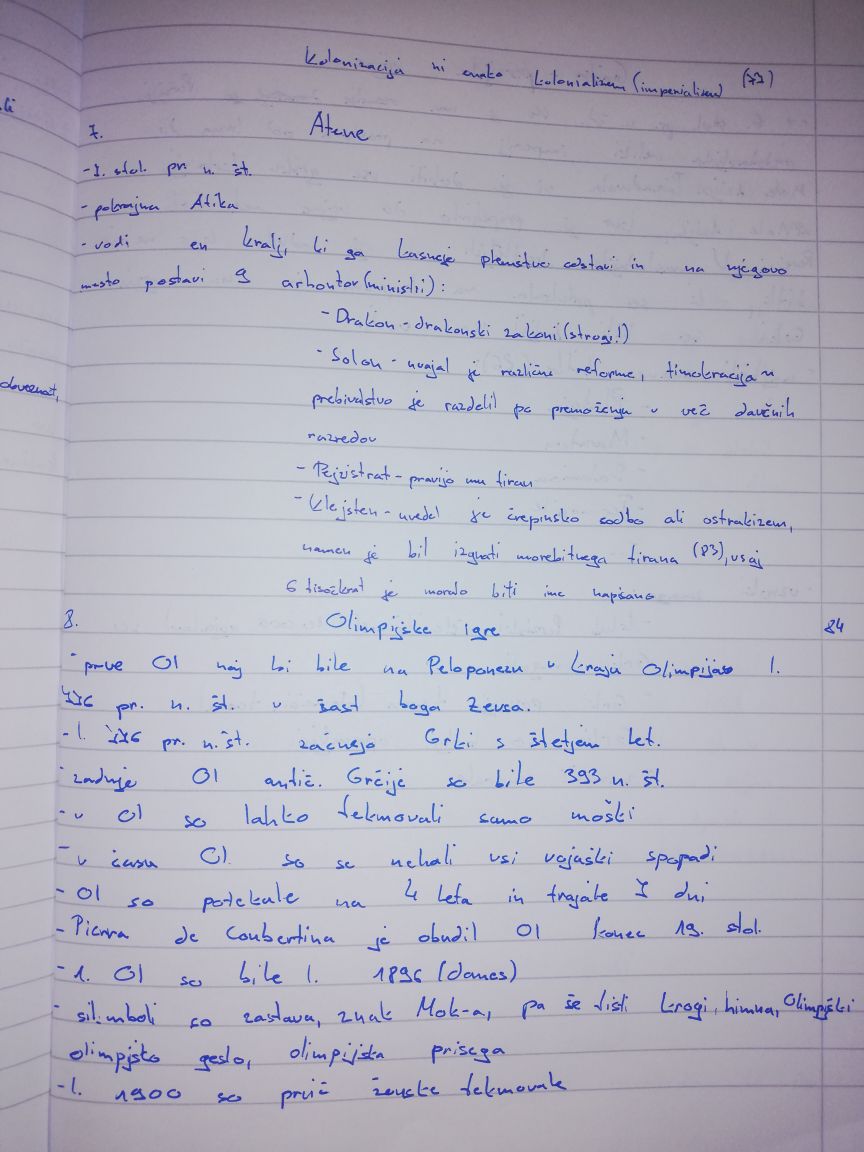 Kolonizacija ni enako kolonializem (imperializem) (77)
7. Atene
- 7. stol. pr. n. št.
- pokrajina Atika
- vodi en kralj, ki ga kasneje plemstvo odstavi in na njegovo
mesto postavi 9 arhontov (ministri):
- Drakon - drakonski zakoni (strogi!)
- Solon - uvajal je različne reforme, timokracija ~
prebivalstvo je razdelil po premoženju v več davčnih
razredov
- Pejzistrat - pravijo mu tiran
- Klejsten - uvedel je črepinsko sodbo ali ostrakizem,
namen je bil izgnati morebitnega tirana (83), vsaj
6 tisočkrat je moralo biti ime napisano
obveznost,
8. Olimpijske igre 84
- prve OI naj bi bile na Peloponezu v kraju Olimpija l.
776 pr. n. št. v čast boga Zevsa.
- l. 776 pr. n. št. začnejo Grki s štetjem let.
- zadnje OI antič. Grčije so bile 393 n. št.
- v OI so lahko tekmovali samo moški
- v času OI so se nehali vsi vojaški spopadi
- OI so potekale na 4 leta in trajale 7 dni
- Pierra de Coubertina je obudil OI konec 19. stol.
- 1. OI so bile l. 1896 (danes)
- silimboli so zastava, znak Mok-a, pa še tisti krogi, himna, Olimpijski
olimpjsko geslo, olimpijska prisega
- l. 1900 so prvič ženske tekmovale